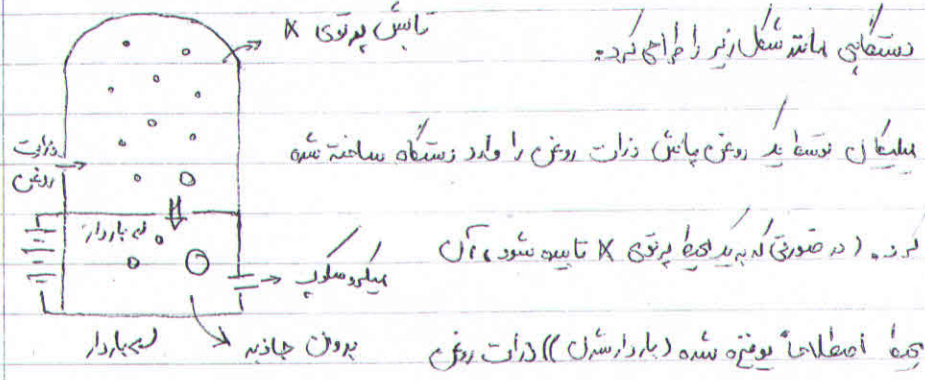 دستگاهی مانند شکل زیر را طراحی کرد:
میلیکان توسط یک روغن پاش ذرات روغن را وارد دستگاه ساخته شده
کرد. (در صورتی که به یک محیط پرتوی X تابیده شود، آن
محیط اصطلاحاً یونیزه شده (باردار شدن)) ذرات روغن
تابش پرتوی X
ذرات
روغن
باردار
میکروسکوپ
بدون جاذبه
باردار